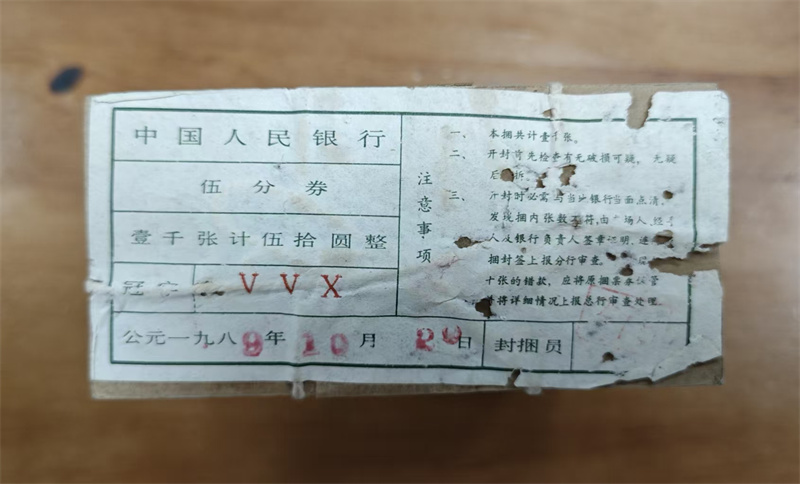 中国人民银行
伍分券
壹千张计伍拾圆整
冠字 VVX
公元一九八9年10月 日 封捆员
注意事项
一、本捆共计壹千张。
二、开封前先检查有无破损可疑,无疑
后 拆。
三、开封时必需与当地银行当面点清,
发现捆内张数不符,由 场人、经
人及银行负责人签章证明,连
捆封签上报分行审查。
十张的错款,应将原捆票 管
将详细情况上报总行审查处理。